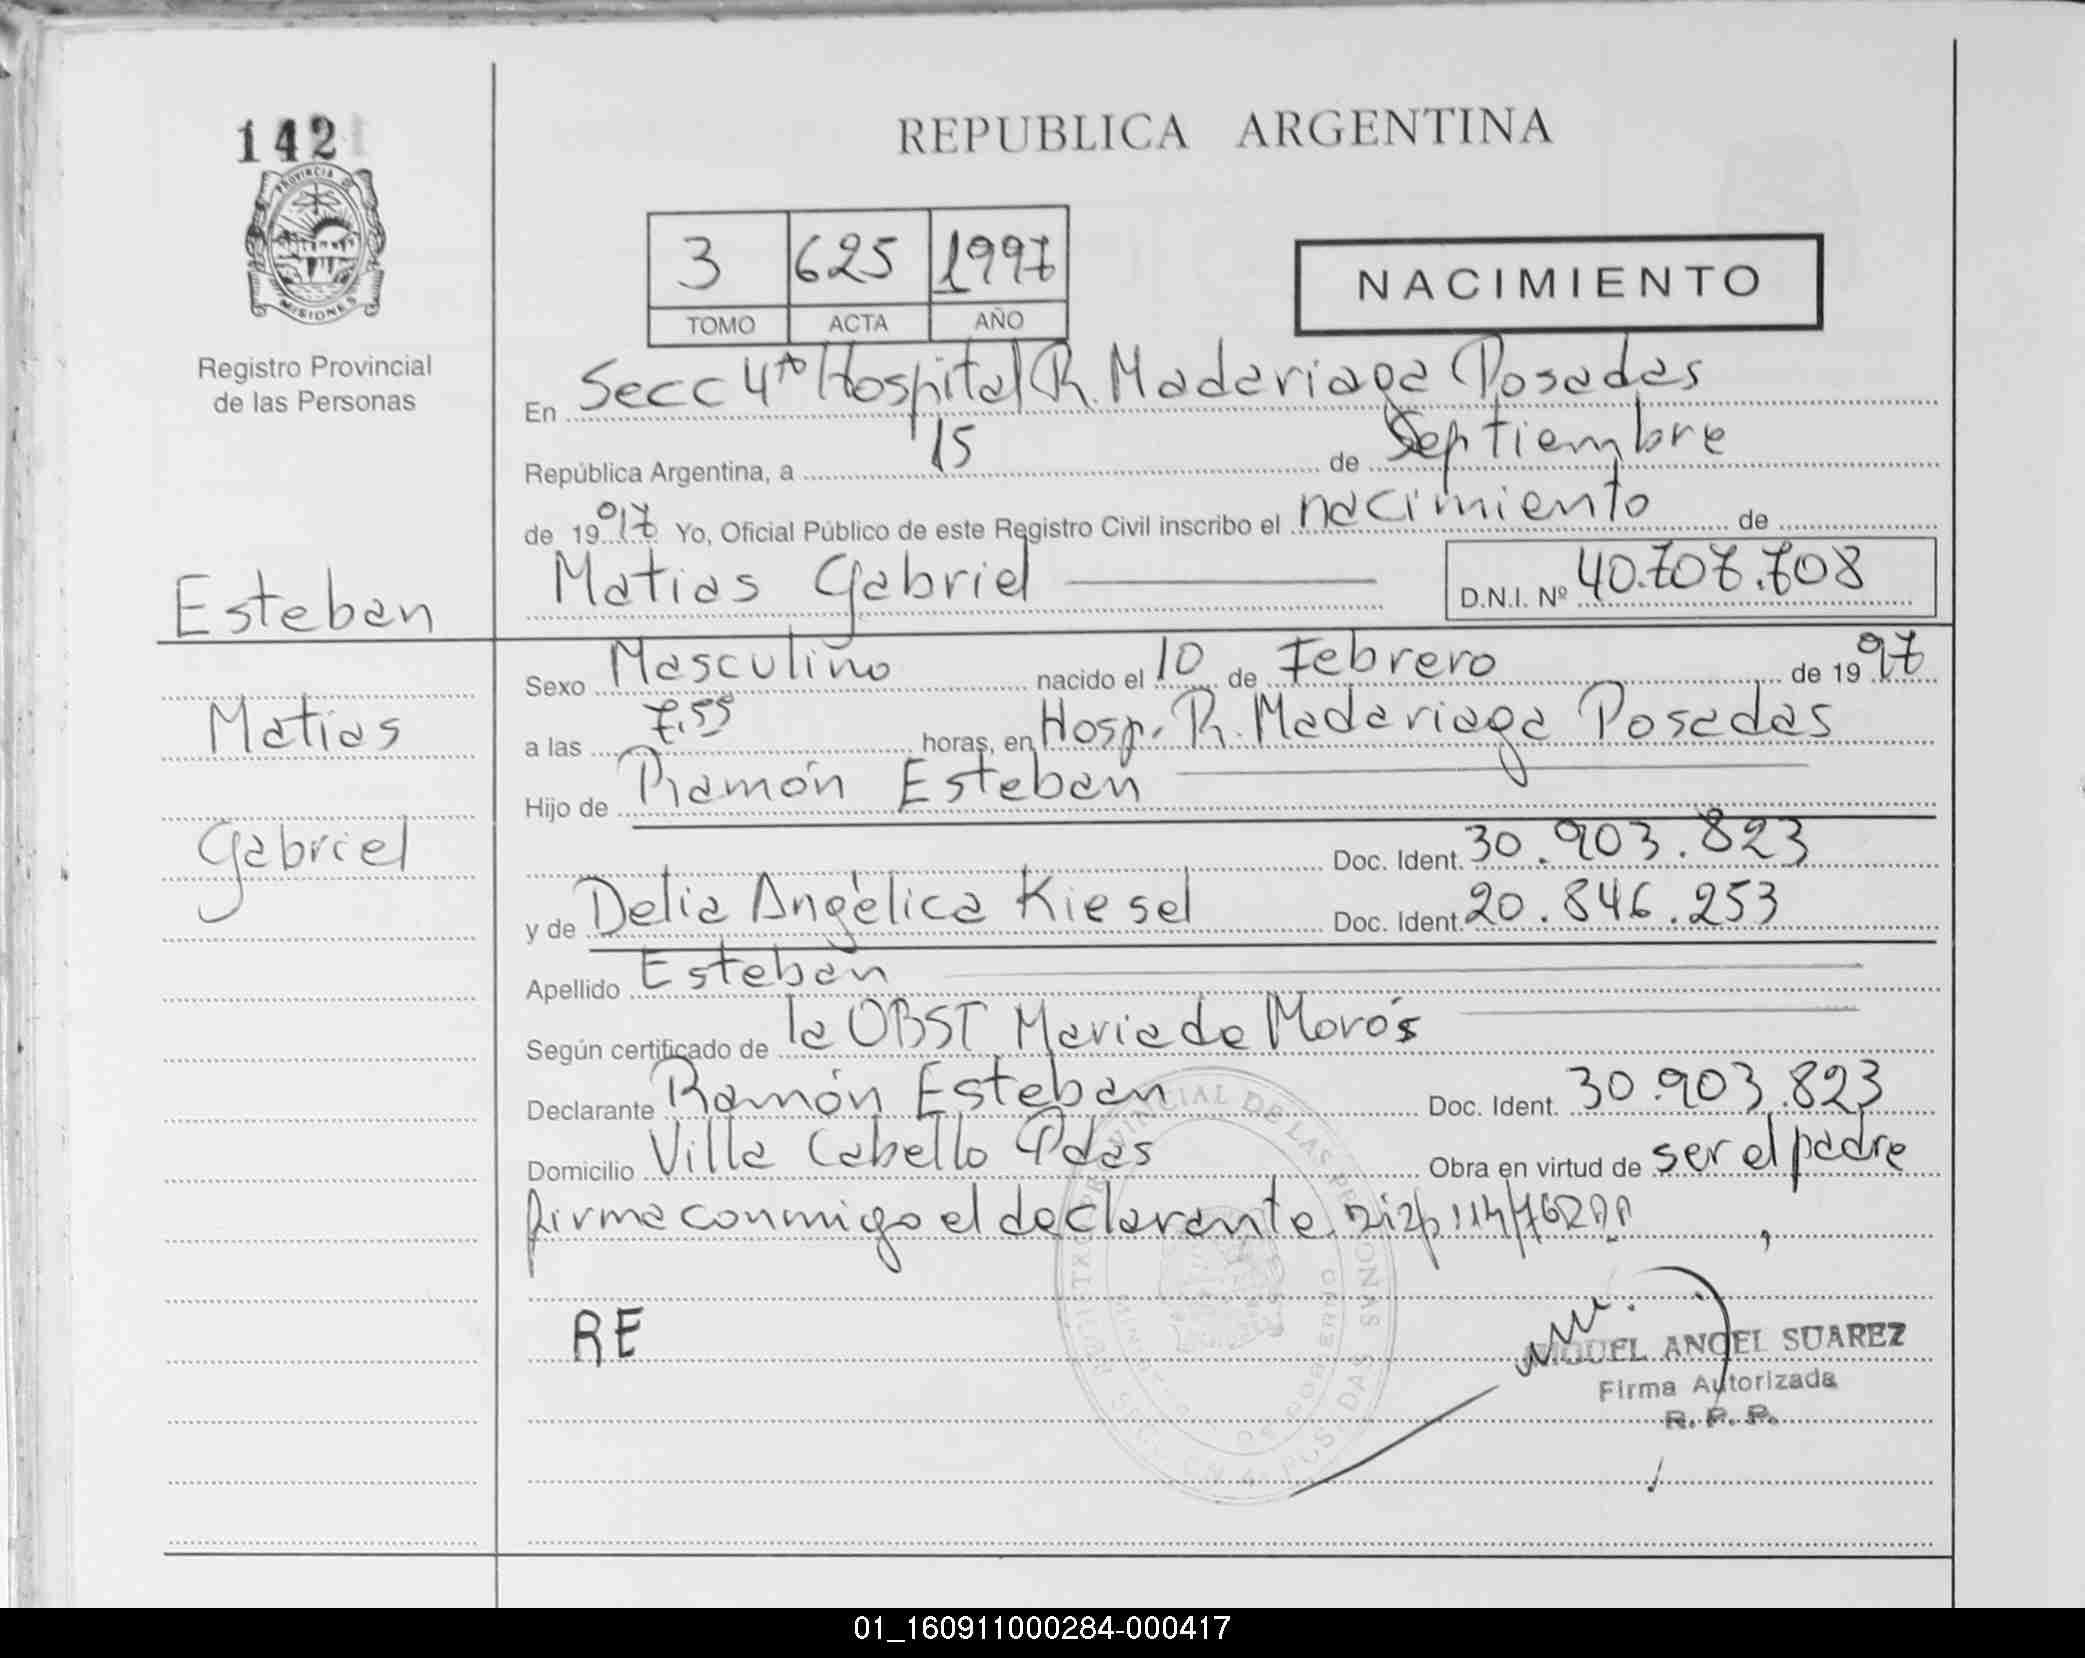 142
PROVINCIA DE
MISIONES
Registro Provincial
de las Personas
REPUBLICA ARGENTINA
3 625 1997
TOMO ACTA AÑO
NACIMIENTO
En Secc 4ta Hospital R. Madariaga Posadas
República Argentina, a 15 de Septiembre
de 1997 Yo, Oficial Público de este Registro Civil inscribo el nacimiento de
Esteban
Matias Gabriel D.N.I. Nº 40.707.708
Sexo Masculino nacido el 10 de Febrero de 1997
Matias
a las 7.55 horas, en Hosp. R. Madariaga Posadas
Hijo de Ramón Esteban
Gabriel
Doc. Ident. 30.903.823
y de Delia Angélica Kiesel Doc. Ident. 20.846.253
Apellido Esteban
Según certificado de la OBST Maria de Morós
Declarante Ramón Esteban Doc. Ident. 30.903.823
Domicilio Villa Cabello Pdas Obra en virtud de ser el padre
firma conmigo el declarante
RE
MIGUEL ANGEL SUAREZ
Firma Autorizada
R. P. P.
01_160911000284-000417